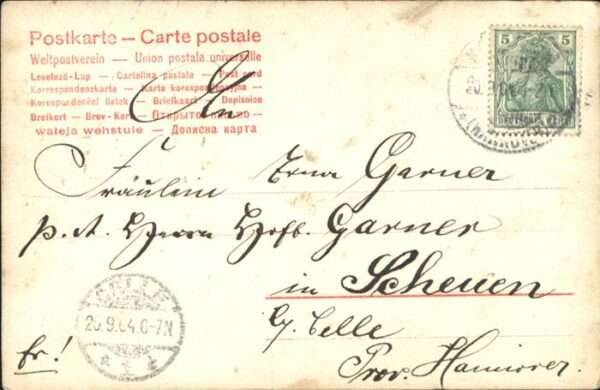 Postkarte — Carte postale
Weltpostverein — Union postale universelle
Levelező-Lap — Cartolina postale — Post card
Korrespondenzkarte — Karta korespondencyjna —
Korespondenční lístek — Briefkaart — Dopisnice
Brevkort — Brev-Kort — Открытое письмо —
wateja wehstule — Дописна карта
5 5
An
Fräulein Erna Garner
p. A. Herrn Hofb. Garner
in Scheuen
b/ Celle
Prov. Hannover.
fr!
CELLE
20.9.04.6-7N